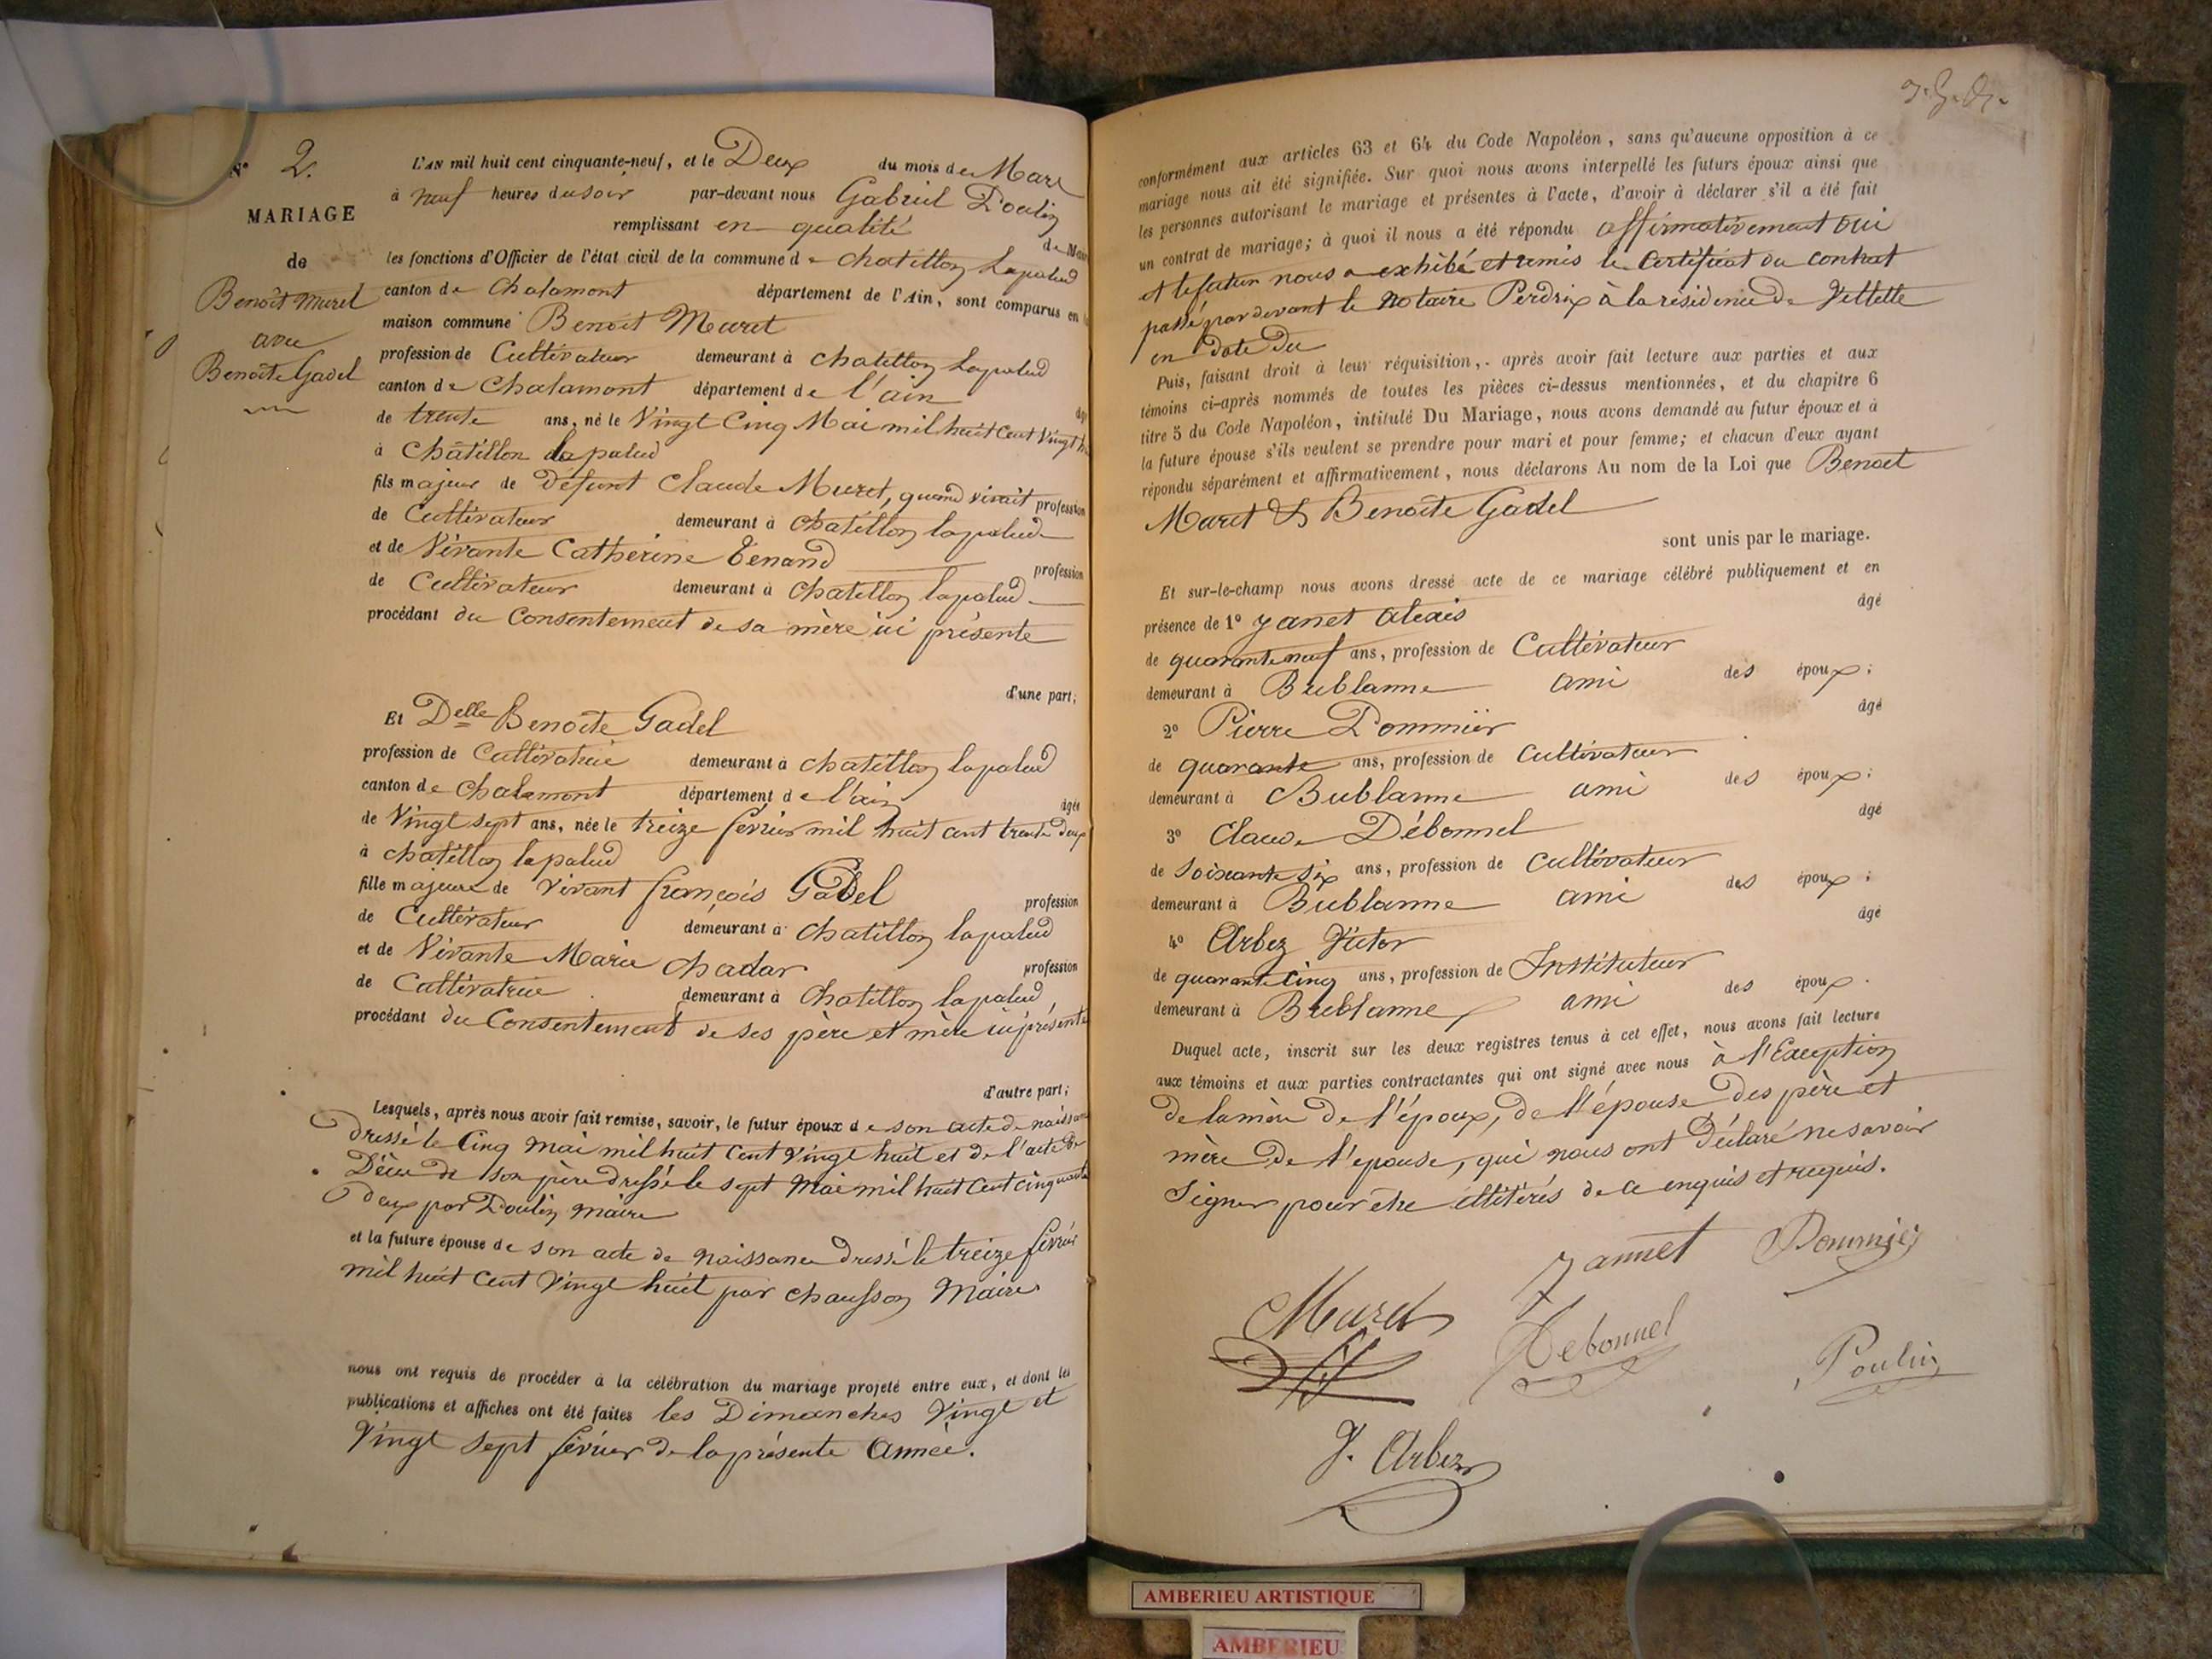 N° 2.
MARIAGE
de
Benoît Muret
avec
Benoîte Gadel
L'AN mil huit cent cinquante-neuf, et le Deux du mois de Mars
à neuf heures du soir par-devant nous Gabriel Poulin
remplissant en qualité de Maire
les fonctions d'Officier de l'état civil de la commune de Chatillon Lapalud
canton de Chalamont département de l'Ain, sont comparus en la
maison commune Benoit Muret
profession de Cultivateur demeurant à Chatillon Lapalud
canton de Chalamont département de l'ain
de trente ans, né le Vingt Cinq Mai mil huit Cent Vingt
à Châtillon lapalud
fils majeur de défunt Claude Muret, quand vivait profession
de Cultivateur demeurant à Chatillon lapalud
et de Vivante Catherine Tenand profession
de Cultivateur demeurant à Chatillon lapalud
procédant du Consentement de sa mère ici présente
d'une part;
Et Delle Benoîte Gadel
profession de Cultivatrice demeurant à Chatillon lapalud
canton de Chalamont département de l'ain âgée
de Vingt sept ans, née le treize février mil huit cent trente deux
à Chatillon lapalud
fille majeure de Vivant françois Gadel profession
de Cultivateur demeurant à Chatillon lapalud
et de Vivante Marie Chadar profession
de Cultivatrice demeurant à Chatillon lapalud,
procédant du Consentement de ses père et mère ici présents
d'autre part;
Lesquels, après nous avoir fait remise, savoir, le futur époux de son acte de naissance
dressé le Cinq Mai mil huit Cent Vingt huit et de l'acte de
Décès de son père dressé le sept Mai mil huit Cent cinquante
deux par Poulin maire
et la future épouse de son acte de naissance dressé le treize février
mil huit Cent Vingt huit par Chausson Maire
nous ont requis de procéder à la célébration du mariage projeté entre eux, et dont les
publications et affiches ont été faites les Dimanches Vingt et
Vingt sept février de la présente Année.
conformément aux articles 63 et 64 du Code Napoléon, sans qu'aucune opposition à ce
mariage nous ait été signifiée. Sur quoi nous avons interpellé les futurs époux ainsi que
les personnes autorisant le mariage et présentes à l'acte, d'avoir à déclarer s'il a été fait
un contrat de mariage; à quoi il nous a été répondu affirmativement oui
et le futur nous a exhibé et remis le Certificat du contrat
passé par devant le Notaire Perdrix à la résidence de Villette
en date du
Puis, faisant droit à leur réquisition, après avoir fait lecture aux parties et aux
témoins ci-après nommés de toutes les pièces ci-dessus mentionnées, et du chapitre 6
titre 5 du Code Napoléon, intitulé Du Mariage, nous avons demandé au futur époux et à
la future épouse s'ils veulent se prendre pour mari et pour femme; et chacun d'eux ayant
répondu séparément et affirmativement, nous déclarons Au nom de la Loi que Benoit
Muret & Benoîte Gadel
sont unis par le mariage.
Et sur-le-champ nous avons dressé acte de ce mariage célébré publiquement et en
présence de 1° Janet Alexis âgé
de quarante neuf ans, profession de Cultivateur
demeurant à Bublanne ami des époux;
2° Pierre Pommier âgé
de quarante ans, profession de Cultivateur
demeurant à Bublanne ami des époux;
3° Claude Débonnel âgé
de Soixante Six ans, profession de Cultivateur
demeurant à Bublanne ami des époux;
4° Arbez Victor âgé
de quarante Cinq ans, profession de Instituteur
demeurant à Bublanne ami des époux.
Duquel acte, inscrit sur les deux registres tenus à cet effet, nous avons fait lecture
aux témoins et aux parties contractantes qui ont signé avec nous à l'Exception
de la mère de l'époux, de l'épouse des père et
mère de l'épouse, qui nous ont déclaré ne savoir
Signer pour être illitérés de ce enquis et requis.
Jannet Pommier
Muret Debonnel Poulin
V. Arbez
AMBERIEU ARTISTIQUE
AMBERIEU